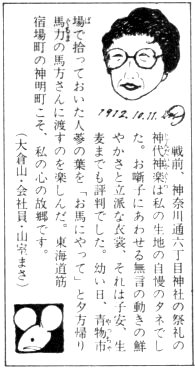 1912.10.11.
戦前、神奈川通六丁目神社の祭礼の
神代神楽は私の生地の自慢のタネでし
た。お囃子にあわせる無言の動きの鮮
やかさと立派な衣裳、それは子安、生
麦までも評判でした。幼い日、青物市
場で拾っておいた人参の葉を「お馬にやって」と夕方帰り
馬力の馬方さんに渡すのを楽しんだ。東海道筋
宿場町の神明町こそ、私の心の故郷です。
（大倉山・会社員・山室まさ）